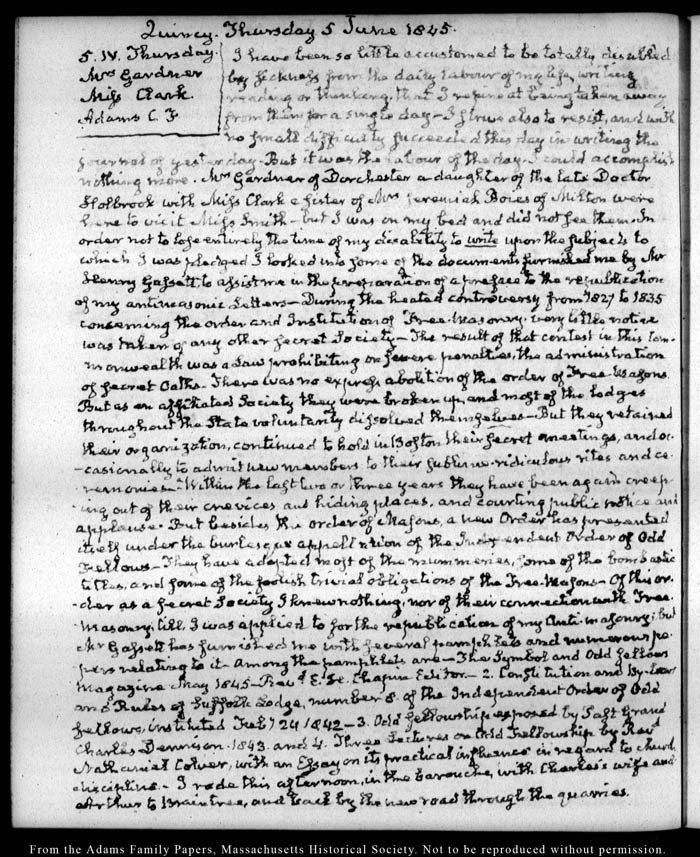 Quincy. Thursday 5 June 1845.
5. IV. Thursday.
Mrs Gardner
Miss Clark.
Adams C. F.
I have been so little accustomed to be totally disabled
by sickness from the daily labour of my life, writing
reading or thinking, that I repine at being taken away
from them for a single day - I strive also to resist, and with
no small difficulty succeeded this day in writing the
journal of yesterday - But it was the labour of the day. I could accomplish
nothing more. Mrs Gardner of Dorchester a daughter of the late Doctor
Holbrook with Miss Clark a sister of Mrs Jeremiah Boies of Milton were
here to visit Miss Smith - but I was on my bed and did not see them. In
order not to lose entirely the time of my disability to write upon the subjects to
which I was pledged I looked into some of the documents furnished me by Mr
Henry Gassett to assist me in the preparation of a preface to the republication
of my antimasonic Letters - During the heated controversy from 1827 to 1835
concerning the order and Institution of Free-Masonry, very little notice
was taken of any other secret Society - The result of that contest in this Com-
monwealth was a Law prohibiting on severe penalties, the administration
of secret Oaths. There was no express abolition of the order of Free-Masons
But as an affiliated Society they were broken up, and most of the lodges
throughout the State voluntarily dissolved themselves - But they retained
their organization, continued to hold in Boston their secret meetings, and oc-
-casionally to admit new members to their sublime-ridiculous rites and ce-
remonies - Within the last two or three years they have been again creep-
ing out of their crevices and hiding places, and courting public notice and
applause. But besides the order of Masons, a new Order has presented
itself under the burlesque appellation of the Independent Order of Odd
Fellows - They have adopted most of the mummeries, some of the bombastic
titles, and some of the foolish trivial obligations of the Free-Masons - Of this or-
-der as a secret Society I knew nothing, nor of their connection with Free-
Masonry till I was applied to for the republication of my Anti-masonry; but
Mr Gassett has furnished me with several pamphlets and numerous pa-
pers relating to it. Among the pamphlets are - The Symbol and Odd fellows
Magazine May 1845 - Revd E. H. Chapin Editor. - 2. Constitution and By-laws
and Rules of Suffolk Lodge, number 8 of the Independent Order of Odd
fellows, instituted Feby 24 1842 - 3. Odd fellowship exposed by Past Grand
Charles Dennison. 1843. and 4. Three Lectures on Odd Fellowship by Revd
Nathaniel Colver, with an Essay on its practical influence in regard to church
discipline. - I rode this afternoon, in the barouche, with Charles's wife and
Arthur to Braintree, and back by the new road through the quarries.
From the Adams Family Papers, Massachusetts Historical Society. Not to be reproduced without permission.